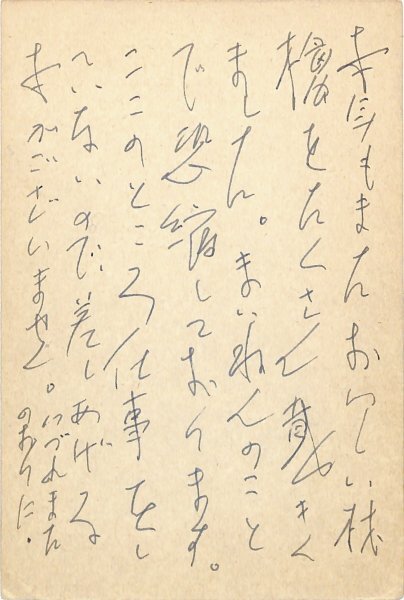 本年もまたおいしい林
檎をたくさん戴き
ました。まいねんのこと
で恐縮しております。
ここのところ仕事をし
ていないので差しあげる
本がございません。いづれまた
のおりに。